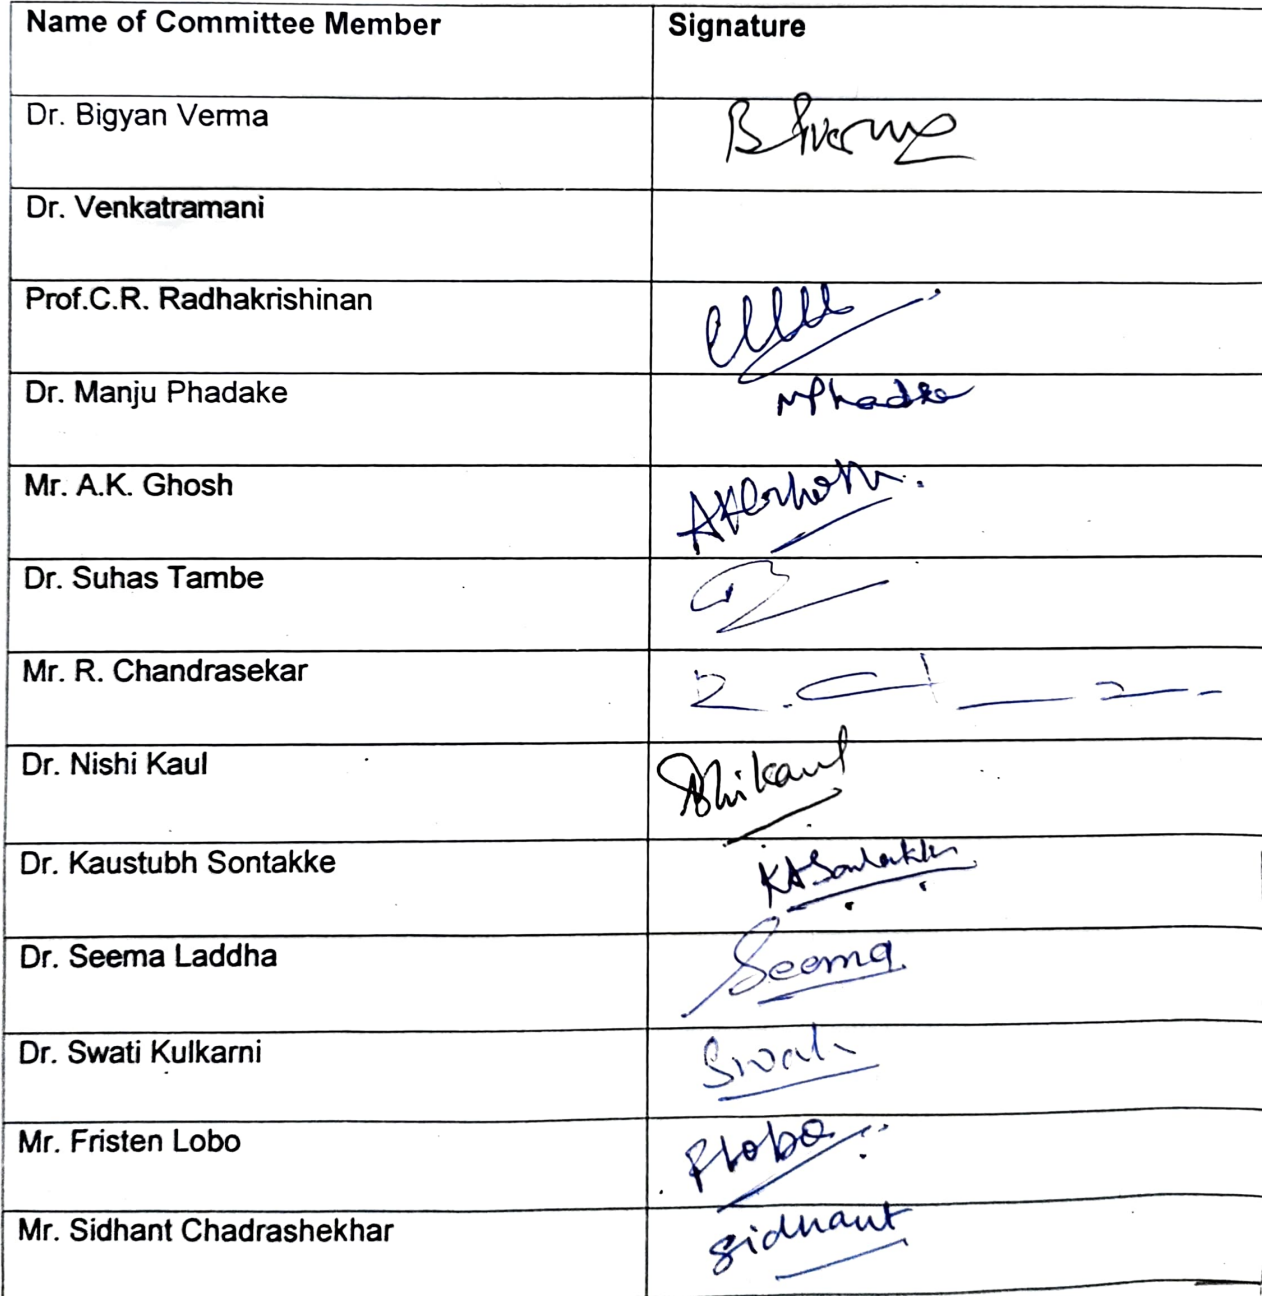 Name of Committee Member Signature
Dr. Bigyan Verma
Dr. Venkatramani
Prof.C.R. Radhakrishinan
Dr. Manju Phadake MPhadke
Mr. A.K. Ghosh AKGhosh
Dr. Suhas Tambe
Mr. R. Chandrasekar
Dr. Nishi Kaul
Dr. Kaustubh Sontakke KASontakke
Dr. Seema Laddha Seema
Dr. Swati Kulkarni Swati
Mr. Fristen Lobo FLobo
Mr. Sidhant Chadrashekhar Sidhant